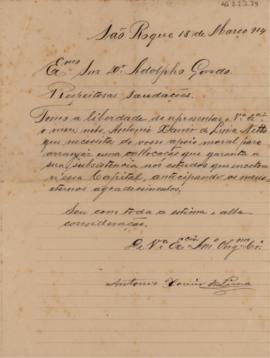 São Roque 18 de Março 914
Exmo Snr Dr. Adolpho Gordo
Respeitosas Saudações.
Tomo a liberdade de apresentar a V.ª Ex.cia
o meu neto, Antonio Xavier de Lima Netto
que necessita do vosso apoio moral para
arranjar uma collocação que garanta a
sua subsistencia nos estudos que
n'essa Capital, anticipando os meus
eternos agradecimentos.
Sou com toda a estima e alta
consideração.
De V.ª Ex.cia
Antonio Xavier de Lima